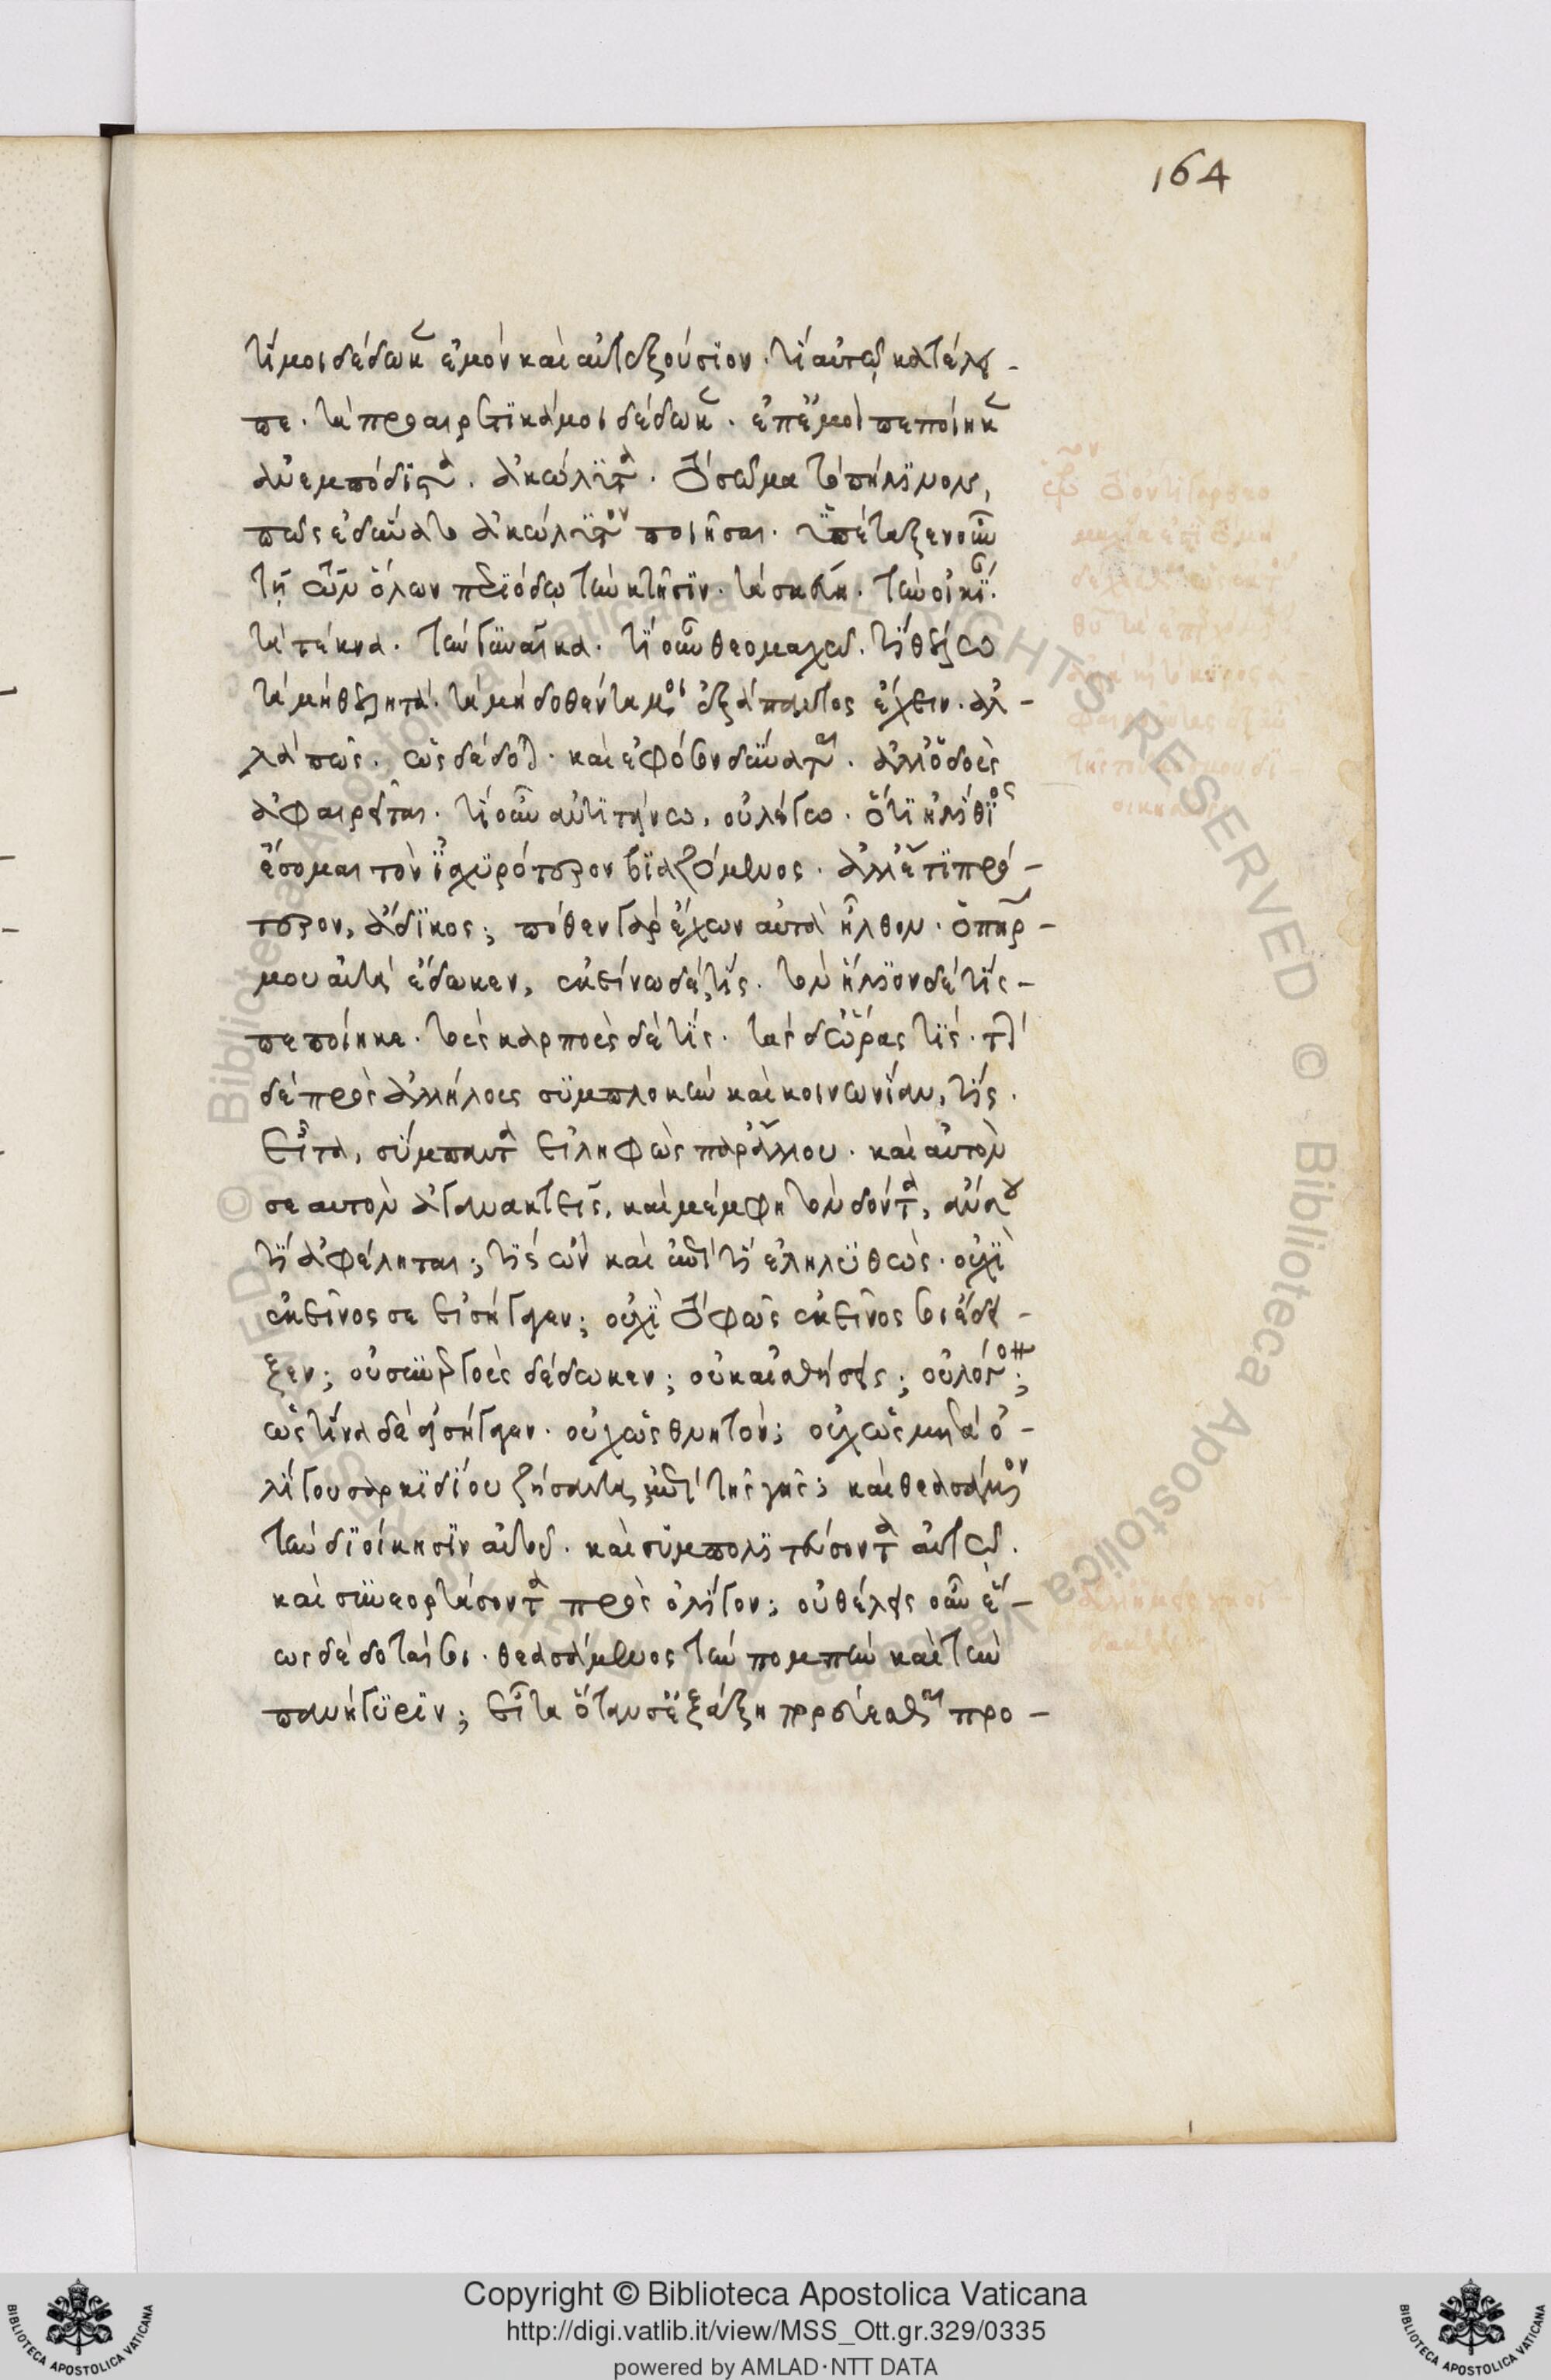 164
τί μοι δέδωκε ἐμὸν καὶ αὐτεξούσιον. τί αὑτῷ κατέλι-
πε. τὰ προαιρετικά μοι δέδωκε. ἐπ' ἐμοὶ πεποίηκε
ἀνεμπόδιστα. ἀκώλυτα. τὸ σῶμα τὸ πήλινον,
πῶς ἐδύνατο ἀκώλυτον ποιῆσαι. ὑπέταξεν οὖν
τῇ τῶν ὅλων περιόδῳ τὴν κτῆσιν. τὰ σκεύη. τὴν οἰκίαν.
τὰ τέκνα. τὴν γυναῖκα. τί οὖν θεομαχῶ. τί θέλω
τὰ μὴ θελητά. τὰ μὴ δοθέντα μοι ἐξ ἅπαντος ἔχειν. ἀλ-
λὰ πῶς. ὡς δέδοται. καὶ ἐφ' ὅσον δύναται. ἀλλ' ὁ δοὺς
ἀφαιρεῖται. τί οὖν ἀντιτείνω. οὐ λέγω. ὅτι ἠλίθιος
ἔσομαι τὸν ἰσχυρότερον βιαζόμενος. ἀλλ' ἔτι πρό-
τερον, ἄδικος; πόθεν γὰρ ἔχων αὐτὰ ἦλθον. ὁ πατήρ
μου αὐτὰ ἔδωκεν, ἐκείνῳ δὲ τίς. τὸν ἥλιον δὲ τίς
πεποίηκε. τοὺς καρποὺς δὲ τίς. τὰς δ' ὥρας τίς. τὴν
δὲ πρὸς ἀλλήλους συμπλοκὴν καὶ κοινωνίαν, τίς.
εἶτα, σύμπαντα εἰληφὼς παρ' ἄλλου. καὶ αὐτὸν
σεαυτὸν ἀγανακτεῖς, καὶ μέμφῃ τὸν δόντα, ἄν σου
τι ἀφέληται; τίς ὢν καὶ ἐπὶ τί ἐληλυθώς. οὐχὶ
ἐκεῖνός σε εἰσήγαγεν; οὐχὶ τὸ φῶς ἐκεῖνός σοι ἔδει-
ξεν; οὐ συνεργοὺς δέδωκεν; οὐ καὶ αἰσθήσεις; οὐ λόγον;
ὡς τίνα δὲ εἰσήγαγεν. οὐχ ὡς θνητόν; οὐχ ὡς μετὰ ὀ-
λίγου σαρκιδίου ζήσαντα ἐπὶ τῆς γῆς; καὶ θεασόμενον
τὴν διοίκησιν αὐτοῦ. καὶ συμπολιτεύσοντα αὐτῷ.
καὶ συνεορτάσοντα πρὸς ὀλίγον; οὐ θέλεις οὖν ἕ-
ως δέδοταί σοι. θεασάμενος τὴν πομπὴν καὶ τὴν
πανήγυριν; εἶτα ὅταν σ' ἐξάγῃ πορεύεσθαι προ-
Copyright © Biblioteca Apostolica Vaticana
http://digi.vatlib.it/view/MSS_Ott.gr.329/0335
powered by AMLAD·NTT DATA